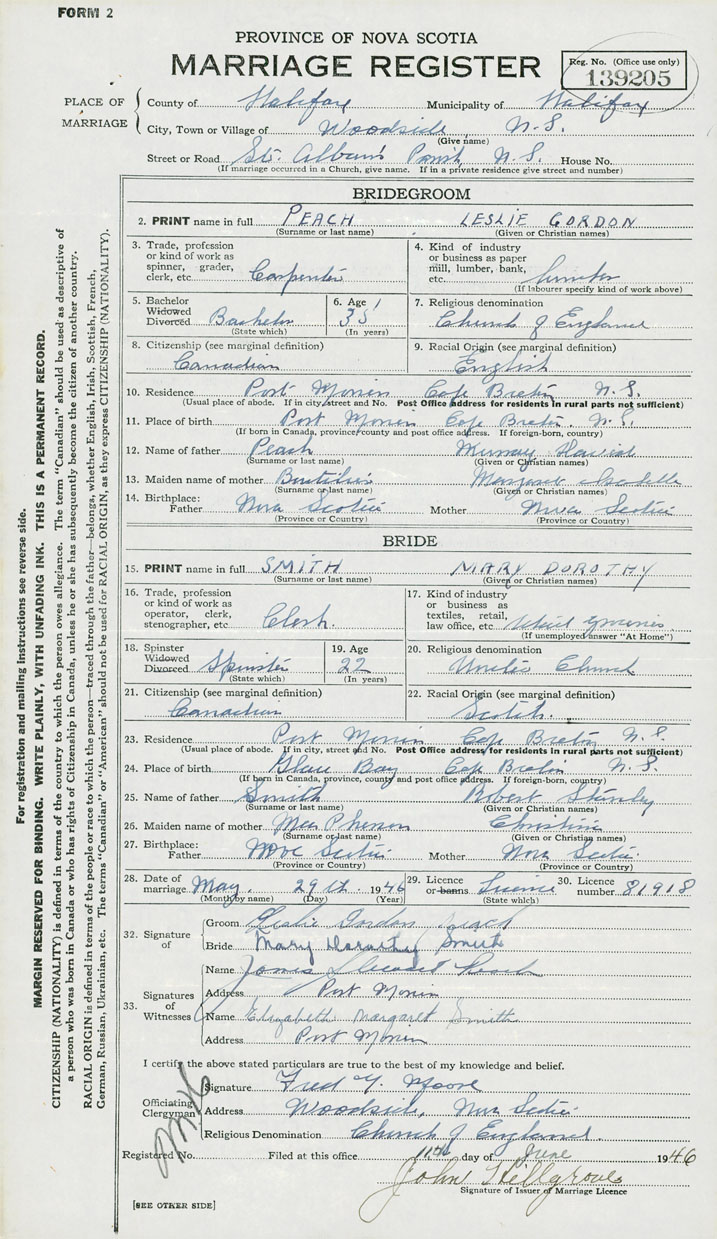 FORM 2
PROVINCE OF NOVA SCOTIA
MARRIAGE REGISTER
Reg. No. (Office use only)
139205
PLACE OF MARRIAGE
County of Halifax Municipality of Halifax
City, Town or Village of Woodside N.S.
(Give name)
Street or Road St. Alban's Parish, N.S. House No.
(If marriage occurred in a Church, give name. If in a private residence give street and number)
BRIDEGROOM
2. PRINT name in full PEACH LESLIE GORDON
(Surname or last name) (Given or Christian names)
3. Trade, profession or kind of work as spinner, grader, clerk, etc. Carpenter
4. Kind of industry or business as paper mill, lumber, bank, etc.
(If labourer specify kind of work above)
5. Bachelor Widowed Divorced Bachelor
(State which)
6. Age 35
(In years)
7. Religious denomination
Church of England
8. Citizenship (see marginal definition)
Canadian
9. Racial Origin (see marginal definition)
English
10. Residence Port Morien Cape Breton N.S.
(Usual place of abode. If in city, street and No. Post Office address for residents in rural parts not sufficient)
11. Place of birth Port Morien Cape Breton. N.S.
(If born in Canada, province, county and post office address. If foreign-born, country)
12. Name of father Peach Murray
(Surname or last name) (Given or Christian names)
13. Maiden name of mother Boutilier Margaret Isabelle
(Surname or last name) (Given or Christian names)
14. Birthplace: Father Nova Scotia Mother Nova Scotia
(Province or Country) (Province or Country)
BRIDE
15. PRINT name in full SMITH MARY DOROTHY
(Surname or last name) (Given or Christian names)
16. Trade, profession or kind of work as operator, clerk, stenographer, etc Clerk.
17. Kind of industry or business as textiles, retail, law office, etc.
(If unemployed answer "At Home")
18. Spinster Widowed Divorced Spinster
(State which)
19. Age 22
(In years)
20. Religious denomination
United Church
21. Citizenship (see marginal definition)
Canadian
22. Racial Origin (see marginal definition)
Scotch.
23. Residence Port Morien Cape Breton N.S.
(Usual place of abode. If in city, street and No. Post Office address for residents in rural parts not sufficient)
24. Place of birth Glace Bay Cape Breton N.S.
(If born in Canada, province, county and post office address. If foreign-born, country)
25. Name of father Smith Robert Stanley
(Surname or last name) (Given or Christian names)
26. Maiden name of mother MacPherson Christine
(Surname or last name) (Given or Christian names)
27. Birthplace: Father Nova Scotia Mother Nova Scotia.
(Province or Country) (Province or Country)
28. Date of marriage May. 29th. 1946
(Month by name) (Day) (Year)
29. Licence or banns Licence
(State which)
30. Licence number 81918
32. Signature of
Groom Leslie Gordon Peach
Bride Mary Dorothy Smith
33. Signatures of Witnesses
Name James Peach
Address Port Morien
Name Elizabeth Margaret Smith
Address Port Morien
I certify the above stated particulars are true to the best of my knowledge and belief.
Officiating Clergyman
Signature Fred Y. Moore
Address Woodside, Nova Scotia
Religious Denomination Church of England.
Registered No. Filed at this office 11th day of June 1946
John Hillgrove
Signature of Issuer of Marriage Licence
[SEE OTHER SIDE]
For registration and mailing instructions see reverse side.
MARGIN RESERVED FOR BINDING. WRITE PLAINLY, WITH UNFADING INK. THIS IS A PERMANENT RECORD.
CITIZENSHIP (NATIONALITY) is defined in terms of the country to which the person owes allegiance. The term "Canadian" should be used as descriptive of
a person who was born in Canada or who has rights of Citizenship in Canada, unless he or she has subsequently become the citizen of another country.
RACIAL ORIGIN is defined in terms of the people or race to which the person—traced through the father—belongs, whether English, Irish, Scottish, French,
German, Russian, Ukrainian, etc. The terms "Canadian" or "American" should not be used for RACIAL ORIGIN, as they express CITIZENSHIP (NATIONALITY).